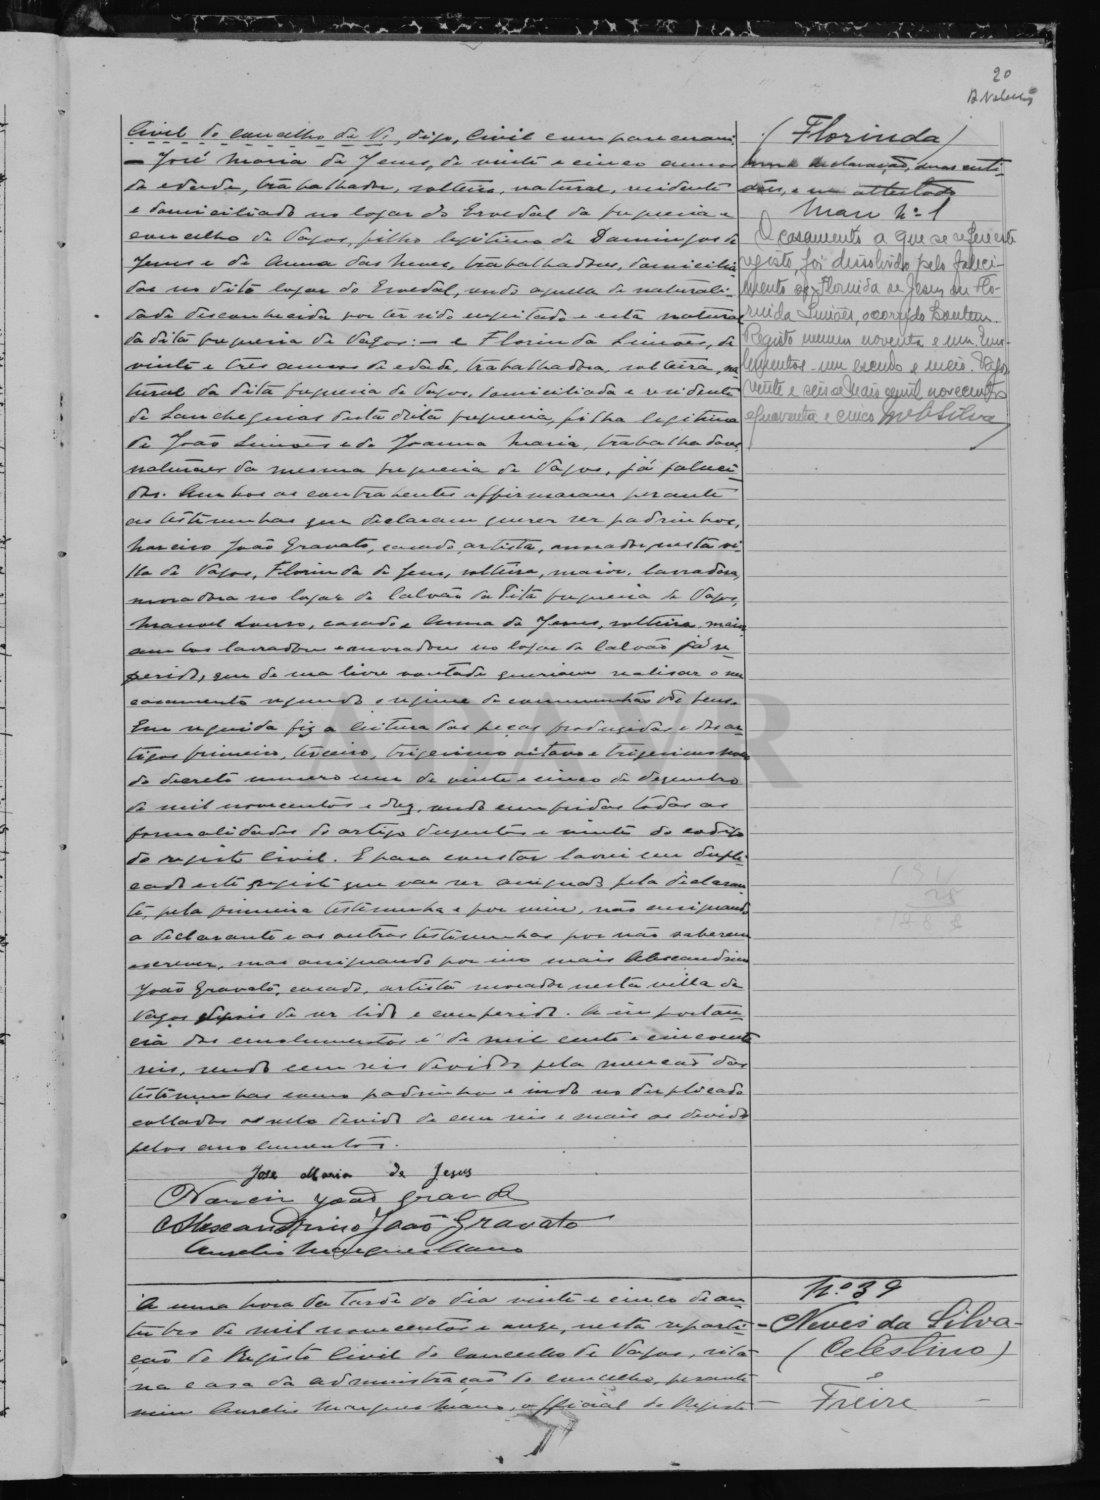 20
Civil do concelho de V, digo, Civil compareceram:
— José Maria de Jesus, de vinte e cinco annos
de edade, trabalhador, solteiro, natural, residente
e domiciliado no logar do Ervedal da freguesia e
concelho de Vagos, filho legitimo de Domingos de
Jesus e de Anna das Neves, trabalhadores, domicilia-
dos no dito logar do Ervedal, sendo aquelle de naturali-
dade desconhecida por ter sido engeitado e esta natural
da dita freguesia de Vagos: — e Florinda Simões, de
vinte e tres annos de edade, trabalhadora, solteira, na-
tural da dita freguesia de Vagos, domiciliada e residente
de desta dita freguesia, filha legitima
de João Simões e de Joanna Maria, trabalhadores
naturaes da mesma freguesia de Vagos, já faleci-
dos. Ambos os contrahentes affirmaram perante
as testemunhas que declaram querer ser padrinhos,
Narciso João Gravato, casado, artista, morador nesta vi-
lla de Vagos, Florinda de Jesus, solteira, maior, lavradora,
moradora no logar de Calvão da dita freguesia de Vagos,
Manuel Louro, casado e Anna de Jesus, solteira, maior
ambos lavradores e moradores no logar de Calvão já re-
ferido, que de sua livre vontade queriam realisar o seu
casamento segundo o regime de communhão de bens.
Em seguida fiz a leitura das peças produzidas e dos ar-
tigos primeiro, terceiro, trigesimo oitavo e trigesimo nono
do decreto numero um de vinte e cinco de dezembro
de mil novecentos e dez, sendo cumpridas todas as
formalidades do artigo duzentos e vinte do codigo
do registo Civil. E para constar lavrei em dupli-
cado este registo que vae ser assignado pelo declaran-
te, pela primeira testemunha e por mim, não assignando
a declarante e as outras testemunhas por não saberem
escrever, mas assignando por isso mais Alexandrino
João Gravato, casado, artista morador nesta villa de
Vagos depois de ser lido e conferido. A importan-
cia dos emolumentos é de mil cento e cincoenta
reis, sendo cem reis devidos pela menção das
testemunhas como padrinhos e indo no duplicado
collados o sello devido de cem reis e mais os devidos
pelos emolumentos.
José Maria de Jesus
Narciso João Gravato
Alexandrino João Gravato
Aurelio Marques Mano
(Florinda)
uma declaração, duas certi-
dões, e um attestado
Maço Nº 1
O casamento a que se refere este
registo, foi dissolvido pelo faleci-
mento de Florinda de Jesus ou Flo-
rinda Simões, ocorrido hontem.
Registo numero noventa e um. Emo-
lumentos um escudo e meio. Vagos
vinte e seis de Maio de mil novecentos
e quarenta e cinco Silva
A uma hora da tarde do dia vinte e cinco de ou-
tubro de mil novecentos e onze, nesta reparti-
ção do Registo Civil do Concelho de Vagos, sita
na casa da administração do concelho, perante
mim Aurelio Marques Mano, official do Registo
Nº 39
Neves da Silva
(Celestino)
e
— Freire —